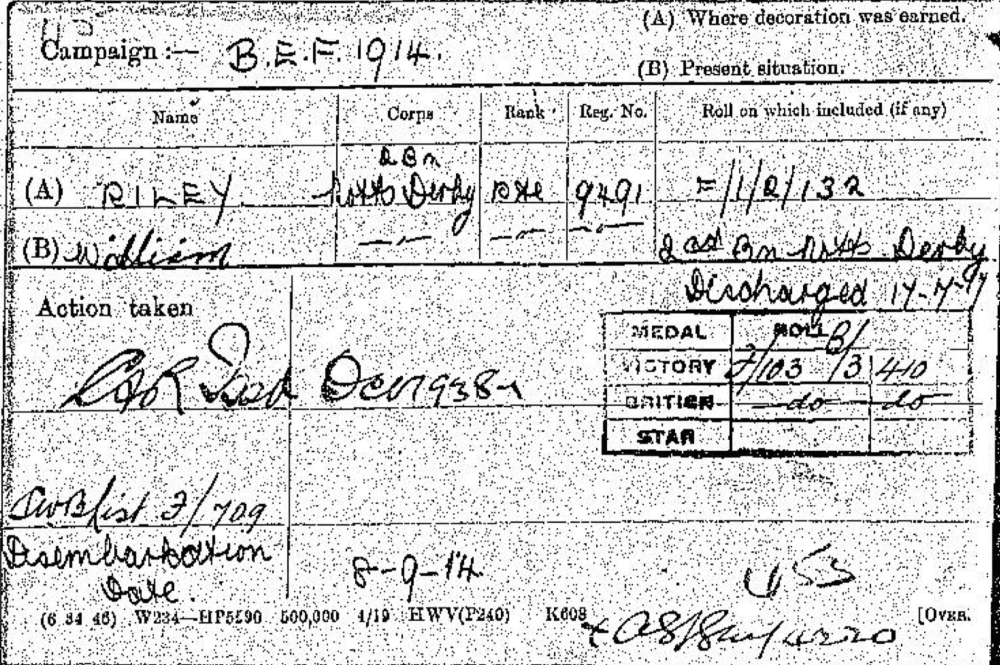 (A) Where decoration was earned.
Campaign :— B.E.F. 1914.
(B) Present situation.
Name Corps Rank Reg. No. Roll on which included (if any)
2 Bn
(A) RILEY Notts Derby Pte 9491 F/1/2/132
(B) William —„— —„— —„— 2nd Bn Notts Derby
Discharged 17-7-17
Action taken
MEDAL ROLL
VICTORY F/103 B/3 410
BRITISH —do— do
STAR
List F/709
Disembarkation
Date. 8-9-14
(6 34 46) W234—HP5590 500,000 4/19 HWV(P240) K608 [OVER.